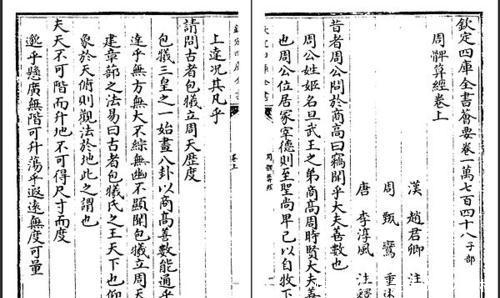 欽定四庫全書薈要卷一萬七千一百四十八子部
周髀算經卷上
漢趙君卿注
周甄鸞重
唐李淳風注
昔者周公問於商高曰竊聞乎大夫善數也
周公姓姬名旦武王之弟商高周時賢大夫善
也周公位居冡宰德則至聖尚卑己以自牧下
上達况其凡乎
請問古者包犧立周天歴度
包犧三皇之一始畫八卦以商高善數能通乎
達乎無方無大不綜無幽不顯聞包犧立周天
建章蔀之法易曰古者包犧氏之王天下也仰
象於天俯則觀法於地此之謂也
夫天不可階而升地不可得尺寸而度
邈乎懸廣無階可升蕩乎遐遠無度可量